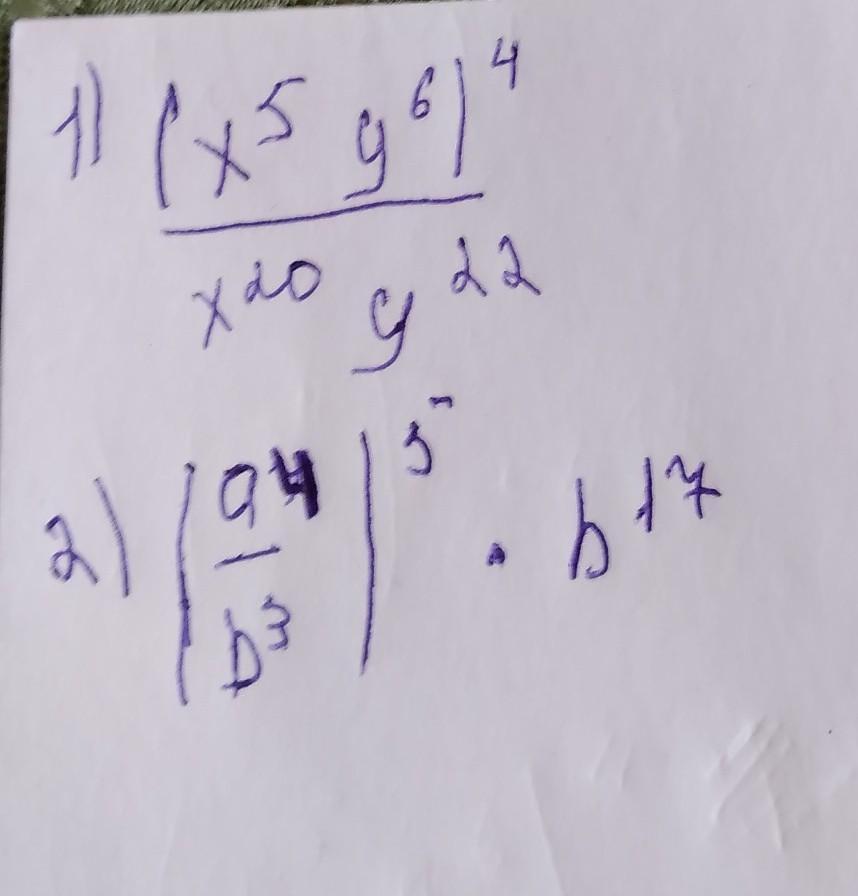 1) (x⁵ y⁶)⁴
x²⁰ y²²
2) (a⁴
b³)⁵ · b¹⁷